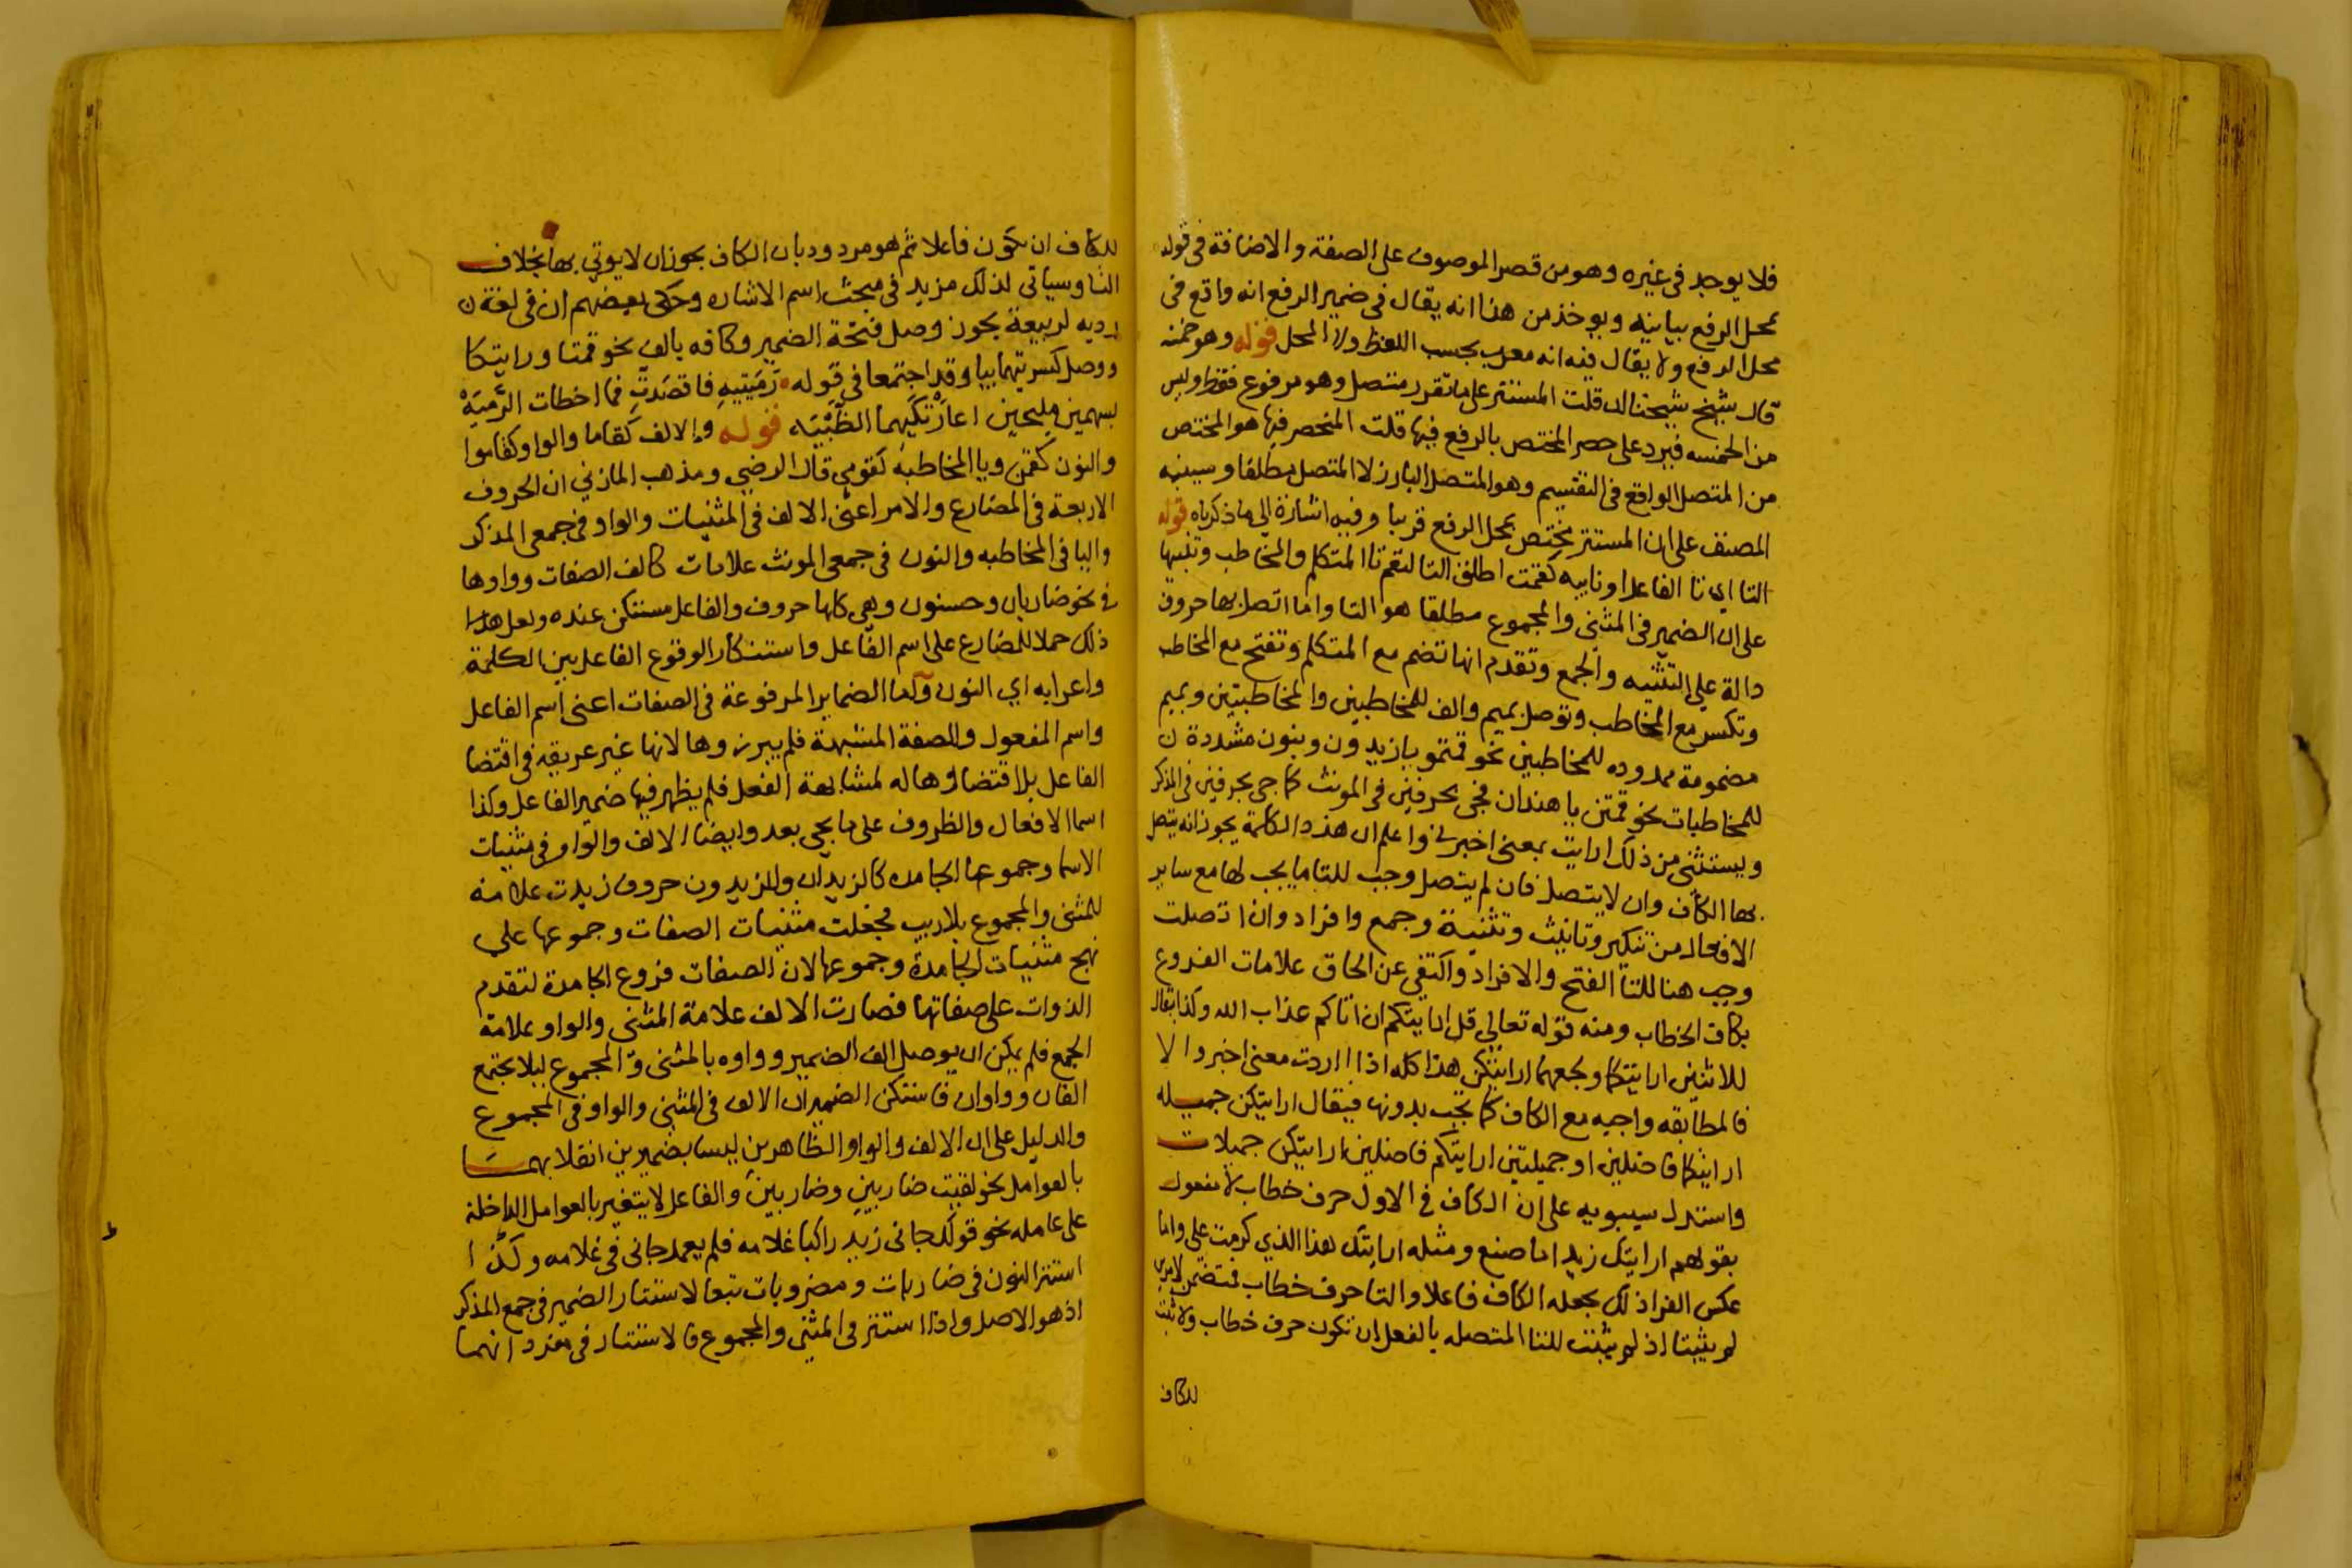 فلا يوجد فى غيره وهو من قصر الموصوف على الصفة والاضافة فى قوله
بمحل الرفع بيانيه ويوخذ من هذا انه يقال فى ضمير الرفع انه واقع فى
محل الرفع ولا يقال فيه انه معرب بحسب اللفظ ولا المحل قوله وهو خمسه
قال شيخ شيخنا ان قلت المستتر على ما تقرر متصل وهو مرفوع فقط وليس
من الخمسه فيرد على حصر المختص بالرفع فيها قلت المنحصر فيها هو المختص
من المتصل الواقع فى التقسيم وهو المتصل البارز لا المتصل مطلقا وسينبه
المصنف على ان المستتر مختص بمحل الرفع قريبا وفيه اشارة الى ما ذكرناه قوله
التا اى تا الفاعل او نايبه كقمت اطلق التا لتعم تا المتكلم والمخاطب وتنبيها
على ان الضمير فى المثنى والمجموع مطلقا هو التا واما اتصل بها حروف
دالة على التثنيه والجمع وتقدم انها تضم مع المتكلم وتفتح مع المخاطب
وتكسر مع المخاطب وتوصل بميم والف للمخاطبين والمخاطبتين وبميم
مضمومة ممدوده للمخاطبين نحو قمتمو يا زيدون وبنون مشددة ن
للمخاطبات نحو قمتن يا هندات فجى بحرفين فى المونث كما جى بحرفين فى المذكر
ويستثنى من ذلك ارايت بمعنى اخبرنى واعلم ان هذه الكلمة يجوز انه يتصل
بها الكاف وان لا يتصل فان لم يتصل وجب للتا ما يجب لها مع ساير
الافعال من تذكير وتانيث وتثنية وجمع وافراد وان اتصلت
وجب هنا للتا الفتح والافراد واكتفى عن الحاق علامات الفروع
بكاف الخطاب ومنه قوله تعالى قل ارايتكم ان اتاكم عذاب الله وكذا يقال
للاثنين ارايتكما وجمعهما ارايتكن هذا كله اذا اردت معنى اخبر والا
فالمطابقه واجبه مع الكاف كما تجب بدونها فيقال ارايتكن جميله
ارايتكما فاضلين او جميلتين ارايتكم فاضلين ارايتكن جميلات
واستدل سيبويه على ان الكاف فى الاول حرف خطاب لا مفعول
بقولهم ارايتك زيد اما صنع ومثله ارايتك هذا الذي كرمت على واما
عكس الفرا ذلك بجعله الكاف فاعلا والتا حرف خطاب
لم يثبتا اذ لم يثبت للتا المتصله بالفعل ان تكون حرف خطاب ولا ثبت
للكاف
للكاف ان يكون فاعلا ثم هو مردود بان الكاف يجوز ان لا يوتي بها بخلاف
التا وسياتى لذلك مزيد فى مبحث اسم الاشاره وحكى بعضهم ان فى لغة ن
رديه لربيعة يجوز وصل فتحة الضمير وكافه بالف نحو قمتا ورايتكا
ووصل كسرتيهما بيا وقد اجتمعا في قوله رَمَيتِيهِ فاقصدتِ فما اخطات الرَّميَهْ
بسهمين مليحين اعارتكيهما الظَّبْيَه قوله والالف كقاما والواو كقاموا
والنون كقمن ويا المخاطبه كقومي قال الرضي ومذهب المازني ان الحروف
الاربعة فى المضارع والامر اعنى الالف فى المثنيات والواو فى جمعى المذكر
واليا فى المخاطبه والنون فى جمعى المونث علامات كالف الصفات وواوها
فى نحو ضاربان وحسنون وهى كلها حروف والفاعل مستكن عنده ولعل هذا
ذلك حملا للمضارع على اسم الفاعل واستنكار الوقوع الفاعل بين الكلمة
واعرابه اي النون واما الضماير المرفوعة فى الصفات اعنى اسم الفاعل
واسم المفعول والصفة المشبهة فلم يبرزوها لانها غير عريقه فى اقتضا
الفاعل بل اقتضاوها له لمشابهة الفعل فلم يظهر فيها ضمير الفاعل وكذا
اسما الافعال والظروف على ما يجى بعد وايضا الالف والواو فى مثنيات
الاسما وجموعها الجامده كالزيدان والزيدون حروف زيدت علامة
للمثنى والمجموع بلا ريب فجعلت مثنيات الصفات وجموعها على
نهج مثنيات الجامدة وجموعها لان الصفات فروع الجامدة لتقدم
الذوات على صفاتها فصارت الالف علامة المثنى والواو علامة
الجمع فلم يمكن ان يوصل الف الضمير وواوه بالمثنى والمجموع ليلا يجتمع
الفان وواوان فاستكن الضميران الالف فى المثنى والواو فى المجموع
والدليل على ان الالف والواو الظاهرين ليسا بضميرين انقلابهما
بالعوامل نحو لقيت ضاربين وضاربين والفاعل لا يتغير بالعوامل الداخلة
على عامله نحو قولك جانى زيد راكبا غلامه فلم يعمل جانى فى غلامه وكذا
استتر النون فى ضاربات ومضروبات تبعا لاستتار الضمير فى جمع المذكر
اذ هو الاصل واذا استتر فى المثنى والمجموع فالاستتار فى مفرد انهما